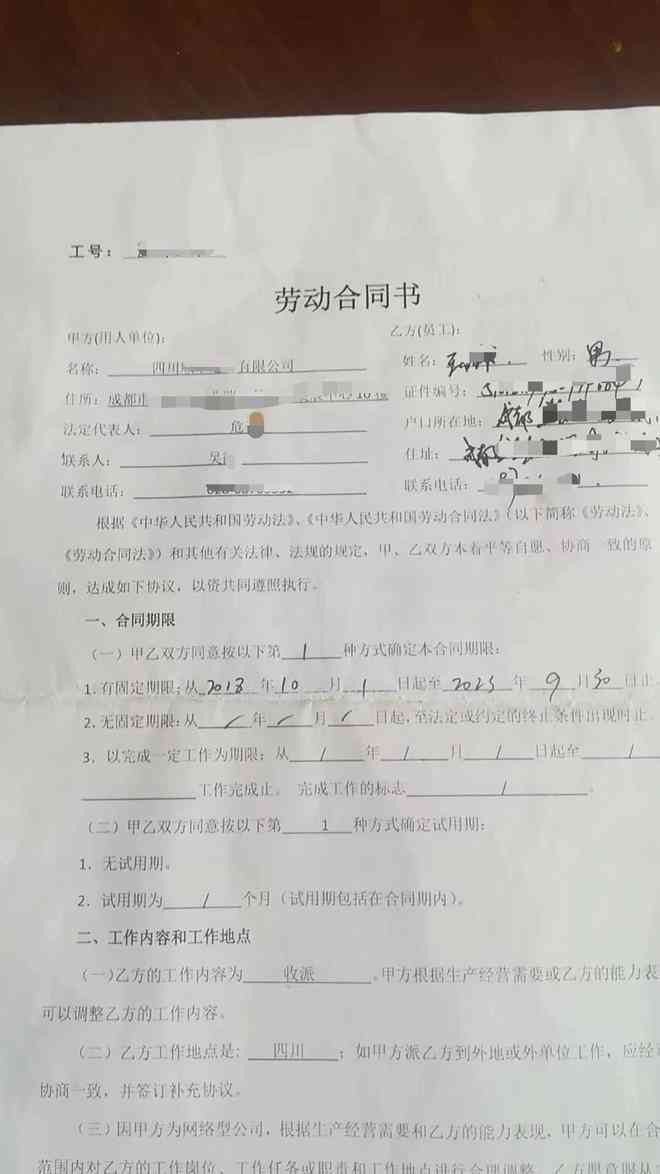 工号：
劳动合同书
甲方(用人单位):
乙方(员工):
名称: 四川 有限公司
姓名: 性别: 男
住所: 成都市
证件编号:
法定代表人:
户口所在地: 成都
联系人: 吴
住址: 成都
联系电话:
联系电话:
根据《中华人民共和国劳动法》、《中华人民共和国劳动合同法》(以下简称《劳动法》、
《劳动合同法》）和其他有关法律、法规的规定，甲、乙双方本着平等自愿、协商一致的原
则，达成如下协议，以资共同遵照执行。
一、合同期限
（一）甲乙双方同意按以下第 1 种方式确定本合同期限：
1.有固定期限:从 2018 年 10 月 1 日起至 2023 年 9 月 30 日止
2.无固定期限:从 / 年 / 月 / 日起,至法定或约定的终止条件出现时止。
3．以完成一定工作为期限：从 / 年 / 月 / 日起至 /
工作完成止。 完成工作的标志 / 。
（二）甲乙双方同意按以下第 1 种方式确定试用期：
1．无试用期。
2．试用期为 / 个月（试用期包括在合同期内）。
二、工作内容和工作地点
（一)乙方的工作内容为 收派 。甲方根据生产经营需要或乙方的能力表
可以调整乙方的工作内容。
（二）乙方工作地点是: 四川 ；如甲方派乙方到外地或外单位工作，应经
协商一致，并签订补充协议。
（三）因甲方为网络型公司，根据生产经营需要和乙方的能力表现，甲方可以在合
范围内对乙方的工作岗位、工作任务或职责和工作地点进行合理调整，乙方愿意服从